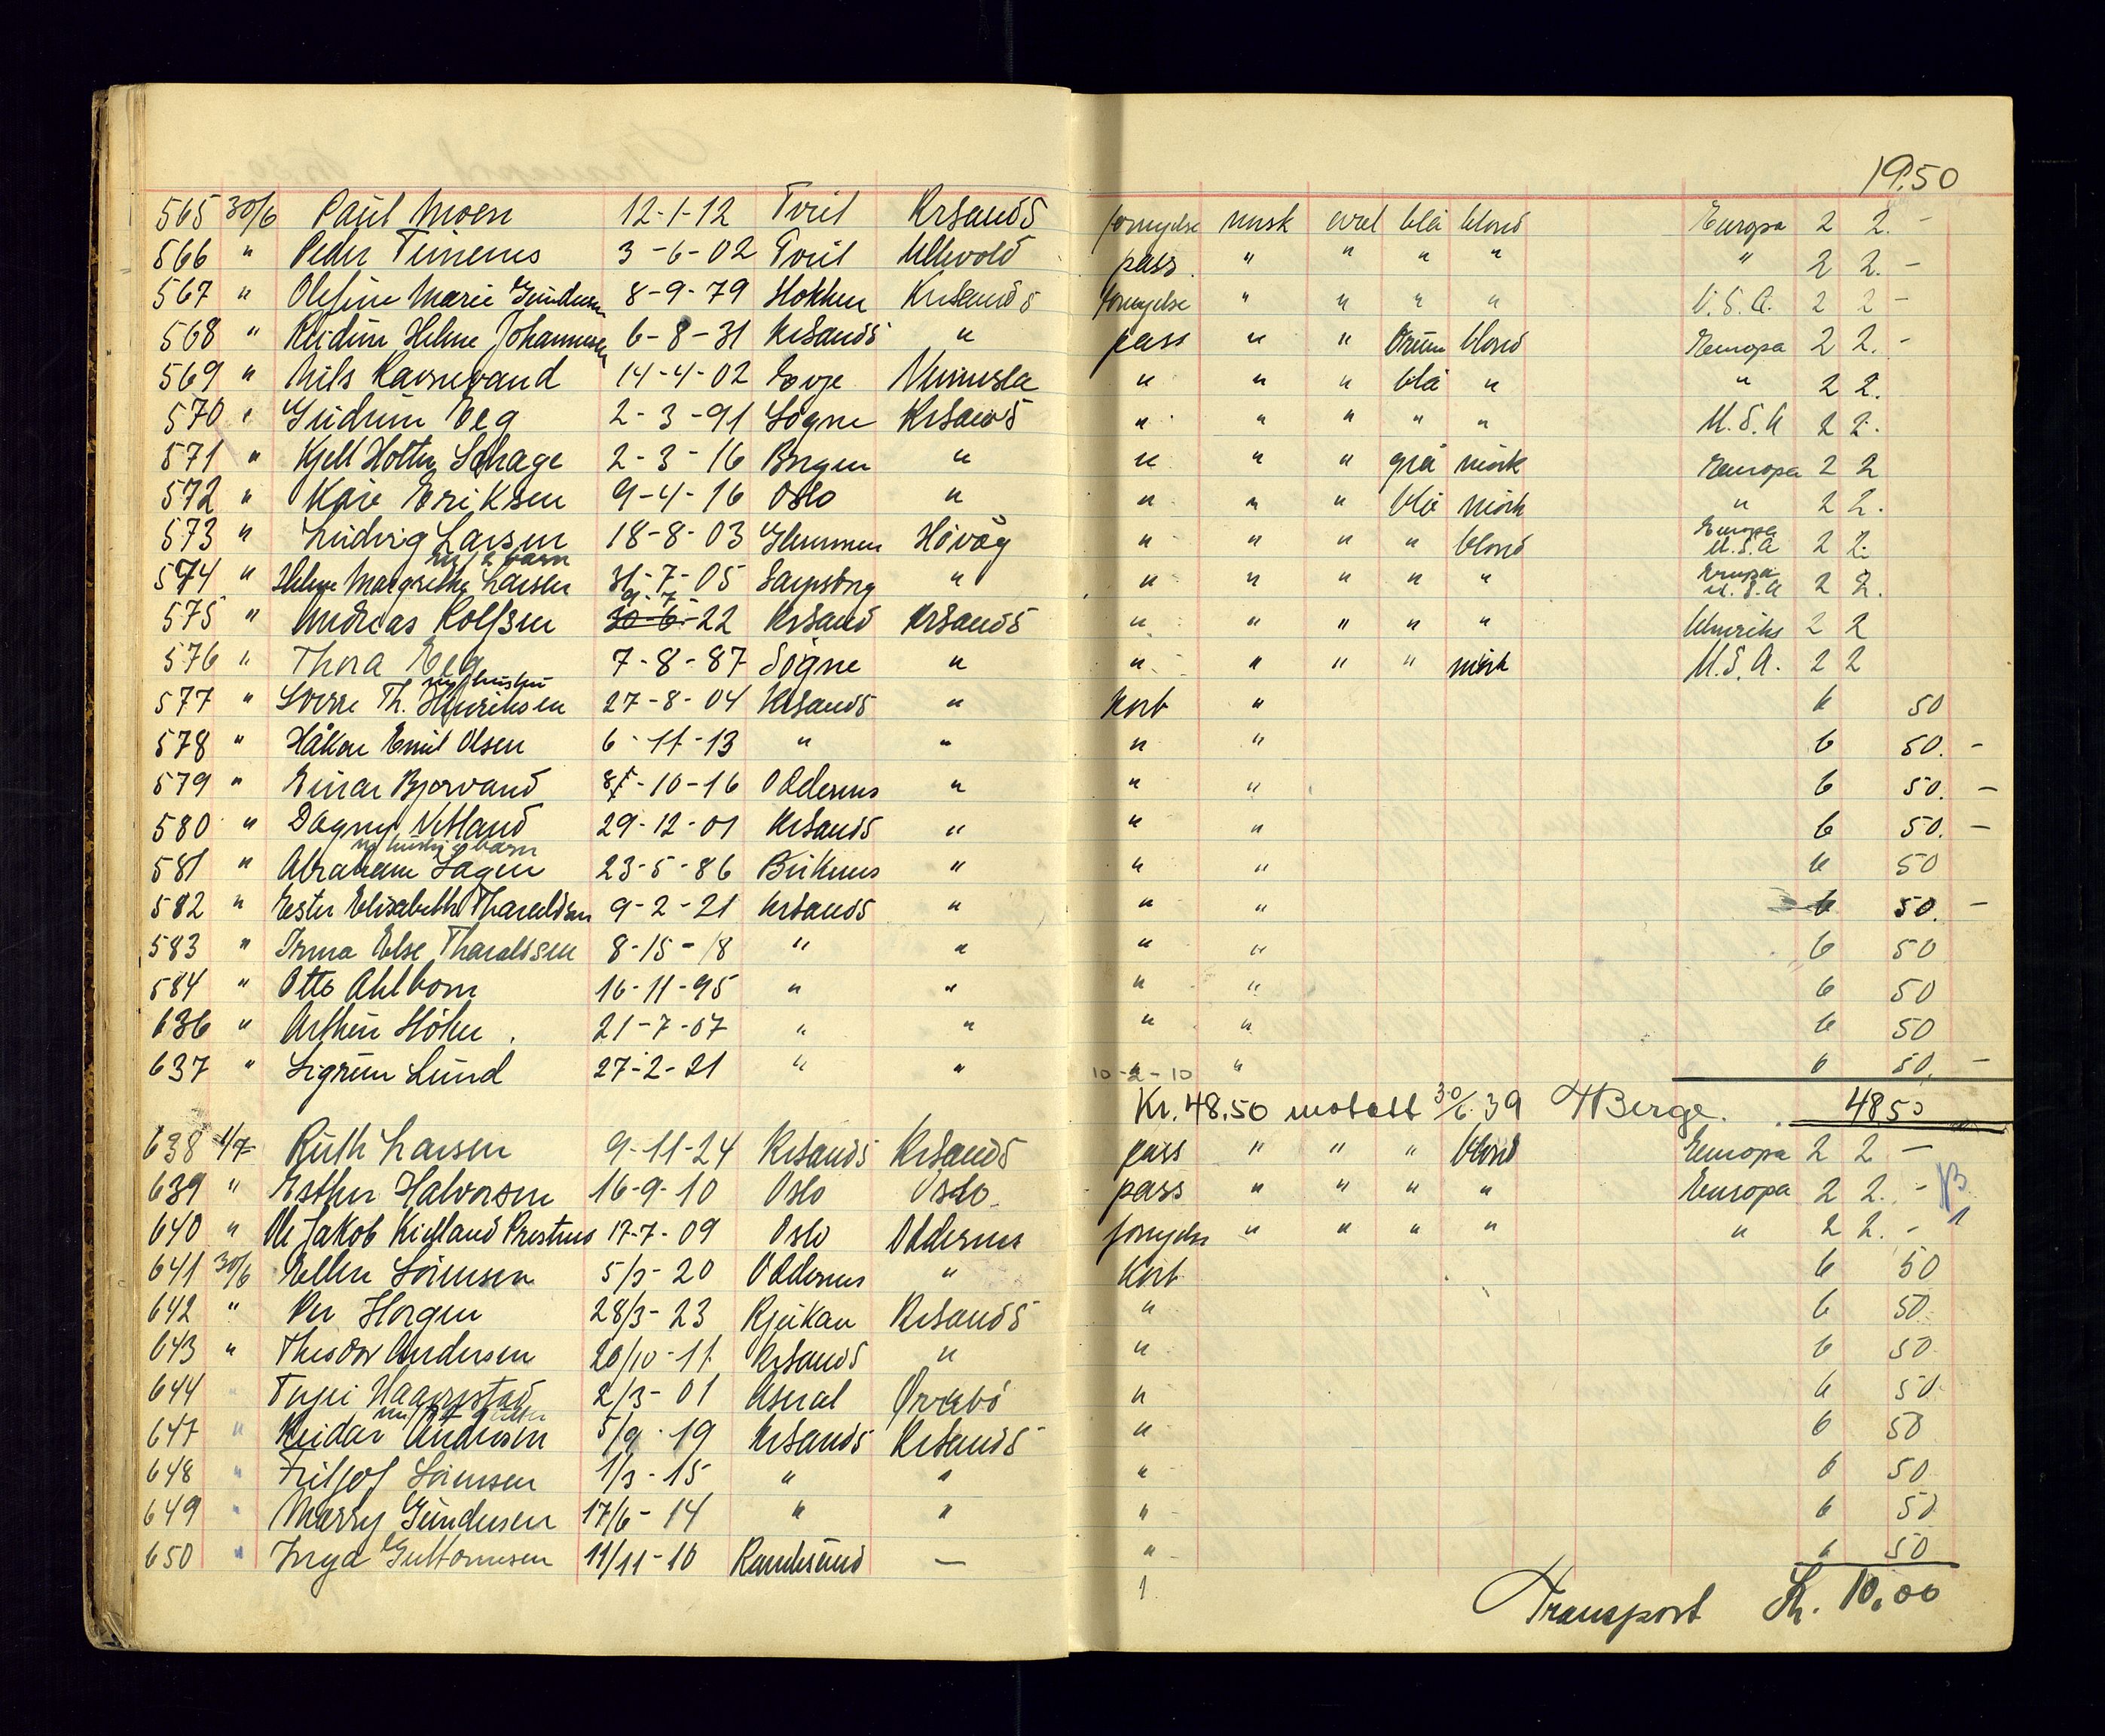 19.50
565 30/6 Paul Moen 12-1-12 Tveit Krsands fornyelse norsk oval blå blond Europa 2 2.-
566 " Peder Timenes 3-6-02 Tveit pass " " " " " 2 2.-
567 " Olefine Marie Gundersen 8-9-79 Krisands fornyelse " " " " U.S.A. 2 2-
568 " Reidun Helene Johannesen 6-8-31 Krsands " pass " " brun blond Europa 2 2.-
569 " Nils Ravnevand 14-4-02 Evje Vennesla " " " blå " " 2 2.
570 " Gudrun Eeg 2-3-91 Søgne Krsands " " " " " U.S.A 2 2.
571 " Kjell Holter 2-3-16 Bergen " " " " grå mörk Europa 2 2
572 " Kåre Eriksen 9-4-16 Oslo " " " " blå mörk " 2 2.
573 " Ludvig Larsen 18-8-03 Glemmen Hövåg " " " " blond Europa U.S.A 2 2.
m/ 2 barn
574 " Helene Margrethe Larsen 31-7-05 Sarpsborg " " " " " " Europa U.S.A 2 2.
9-7-
575 " Andreas Rolfsen 30-6-22 Krsand Krsands " " " " " Utenriks 2 2
576 " Thora Eeg 7-8-87 Sögne " " " " " mörk U.S.A. 2 2
m/ hustru
577 " Sverre Th. Henriksen 27-8-04 Krsands " Kort " 6 50
578 " Håkon Emil Olsen 6-11-13 " " " " 6 50.-
579 " Einar Bjorvand 8-10-16 Oddernes " " " 6 50.-
580 " Dagny Vetland 29-12-01 Krsands " " " 6 50.-
m/ hustru & barn
581 " Abraham Lagen 23-5-86 Birkenes " " " 6 50
582 " Ester Elisabeth Tharaldsen 9-2-21 Krsands " " " 6 50.-
583 " Irma Else Tharaldsen 8-15-18 " " " " 6 50
584 " Otto Ahlbom 16-11-95 " " " " 6 50
636 " Arthur Höhn. 21-7-07 " " " " 6 50
637 " Sigrun Lund 27-2-21 " " " " 6 50.-
10-2-10
Kr. 48.50 motatt 30/6.39 HBerge. 48.50
638 1/7 Ruth Larsen 9-11-24 Krsands Krsands pass " " " blond Europa 2 2-
639 " Esther Halvorsen 16-9-10 Oslo Oslo pass " " " " Europa 2 2.-
640 " Ole Jakob Kielland Prestnes 17-7-09 Oslo Oddernes fornyelse " " " " " 2 2.-
641 30/6 Ellen Sörensen 5/3-20 Oddernes " Kort 6 50
642 " Per Horgen 28/3-23 Rjukan Krsands " 6 50
643 " Theodor Andersen 20/10-11 Krsands " " 6 50
644 " Terjei Haavrstad 2/3-01 Aseral Øvrebö " 6 50
647 " Reidar Andersen 5/9-19 Krsands Krsands " 6 50
648 " Fritjof Sörensen 1/3-15 " " " 6 50
649 " Marry Gundersen 17/6-14 " " " 6 50
650 " Inga Guttormsen 11/11-10 Randesund — " 6 50
Transport Kr. 10.00